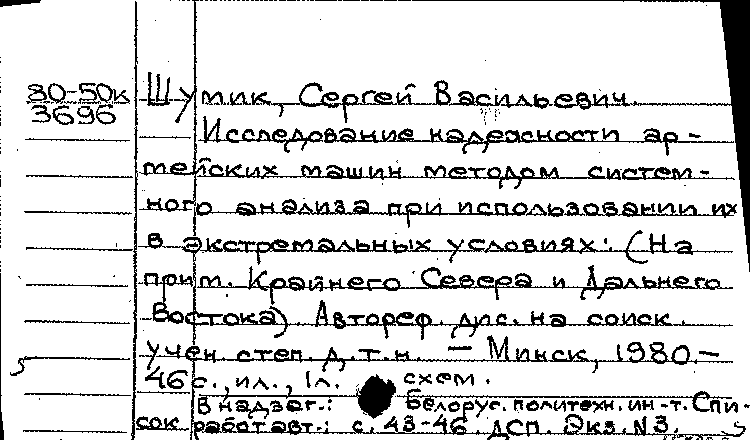 80-50к
3696
Шутик, Сергей Васильевич.
Исследование надежности ар-
мейских машин методом систем-
ного анализа при использовании их
в экстремальных условиях: (На
прим. Крайнего Севера и Дальнего
Востока). Автореф. дис. на соиск.
учен. степ. д.т.н. — Минск, 1980.—
46 с., ил., 1л. схем.
В надзаг.: Белорус. политехн. ин-т. Спи-
сок работ авт.: с. 43-46. ДСП. Экз. N3.